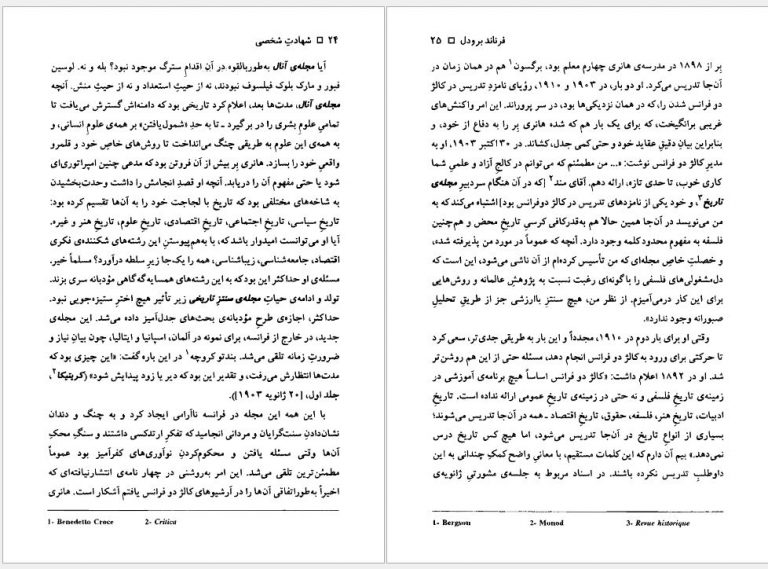 ۲۴ □ شهادتِ شخصی
آیا مجله‌ی آنال به‌طوربالقوه در آن اقدامِ سترگ موجود نبود؟ بله و نه. لوسین
فبور و مارک بلوک فیلسوف نبودند، نه از حیثِ استعداد و نه از حیثِ منش. آنچه
مجله‌ی آنال، مدت‌ها بعد، اعلام کرد تاریخی بود که دامنه‌اش گسترش می‌یافت تا
تمامیِ علومِ بشری را در برگیرد ـ تا به حدِ «شمول‌یافتن» بر همه‌ی علومِ انسانی، و
به همه‌ی این علوم به طریقی چنگ می‌انداخت تا روش‌های خاصِ خود و قلمرو
واقعیِ خود را بسازد. هانری بِر بیش از آن فروتن بود که مدعی چنین امپراتوری‌ای
شود یا حتی مفهوم آن را دریابد. آنچه او قصدِ انجامش را داشت وحدت‌بخشیدن
به شاخه‌های مختلفی بود که تاریخ با لجاجت خود را به آن‌ها تقسیم کرده بود:
تاریخِ سیاسی، تاریخِ اجتماعی، تاریخِ اقتصادی، تاریخِ علوم، تاریخِ هنر و غیره.
آیا او می‌توانست امیدوار باشد که، با به‌هم‌پیوستنِ این رشته‌های شکننده‌ی فکری
اقتصاد، جامعه‌شناسی، زیباشناسی، همه را یک‌جا زیرِ سلطه درآورد؟ مسلماً خیر.
مسئله‌ی او حداکثر این بود که به این رشته‌های همسایه گه‌گاهی مؤدبانه سری بزند.
تولد و ادامه‌ی حیاتِ مجله‌ی سنتزِ تاریخی زیر تأثیر هیچ اخترِ ستیزه‌جویی نبود.
حداکثر، اجازه‌ی طرحِ مؤدبانه‌ی بحث‌های جدل‌آمیز داده می‌شد. این مجله‌ی
جدید، در خارج از فرانسه، برای نمونه در آلمان، اسپانیا و ایتالیا، چون بیانِ نیاز و
ضرورتِ زمانه تلقی می‌شد. بندتو کروچه۱ در این باره گفت: «این چیزی بود که
مدت‌ها انتظارش می‌رفت، و تقدیر این بود که دیر یا زود پیدایش شود» (کریتیکا۲،
جلد اول، [۲۰ ژانویه ۱۹۰۳]).
با این همه این مجله در فرانسه ناآرامی ایجاد کرد و به چنگ و دندان
نشان‌دادنِ سنت‌گرایان و مردانی انجامید که تفکرِ ارتدکسی داشتند و سنگِ محکِ
آن‌ها وقتی مسئله یافتن و محکوم‌کردنِ نوآوری‌های کفرآمیز بود عموماً
مطمئن‌ترین تلقی می‌شد. این امر به‌روشنی در چهار نامه‌ی انتشارنیافته‌ای که
اخیراً به‌طوراتفاقی آن‌ها را در آرشیوهای کالژ دو فرانس یافتم آشکار است. هانری
1- Benedetto Croce 2- Critica
فرناند برودل □ ۲۵
بِر از ۱۸۹۸ در مدرسه‌ی هانری چهارم معلم بود، برگسون۱ هم در همان زمان در
آن‌جا تدریس می‌کرد. او دو بار، در ۱۹۰۳ و ۱۹۱۰، رؤیای نامزدِ تدریس در کالژ
دو فرانس شدن را، که در همان نزدیکی‌ها بود، در سر پروراند. این امر واکنش‌های
غریبی برانگیخت، که برای یک بار هم که شده هانری بِر را به دفاع از خود، و
بنابراین بیانِ دقیقِ عقاید خود و حتی کمی جدل، کشاند. در ۳۰ اکتبر ۱۹۰۳، او به
مدیرِ کالژ دو فرانس نوشت: «... من مطمئنم که می‌توانم در کالجِ آزاد و علمیِ شما
کاری خوب، تا حدی تازه، ارائه دهم. آقای مند۲ [که در آن هنگام سردبیرِ مجله‌ی
تاریخ۳، و خود یکی از نامزدهای تدریس در کالژ دوفرانس بود] اشتباه می‌کند که به
من می‌نویسد در آن‌جا همین حالا هم به‌قدرکافی کرسیِ تاریخِ محض و هم‌چنین
فلسفه به مفهوم محدود کلمه وجود دارد. آنچه که عموماً در مورد من پذیرفته شده،
و خصلتِ خاصِ مجله‌ای که من تأسیس کرده‌ام از آن ناشی می‌شود، این است که
دل‌مشغولی‌های فلسفی را با گونه‌ای رغبت نسبت به پژوهشِ عالمانه و روش‌هایی
برای این کار درمی‌آمیزم. از نظر من، هیچ سنتزِ باارزشی جز از طریقِ تحلیلِ
صبورانه وجود ندارد».
وقتی او برای بار دوم در ۱۹۱۰، مجدداً و این بار به طریقی جدی‌تر، سعی کرد
تا حرکتی برای ورود به کالژ دو فرانس انجام دهد، مسئله حتی از این هم روشن‌تر
شد. او در ۱۸۹۲ اعلام داشت: «کالژ دو فرانس اساساً هیچ برنامه‌ی آموزشی در
زمینه‌ی تاریخِ فلسفی و نه حتی در زمینه‌ی تاریخِ عمومی ارائه نداده است. تاریخِ
ادبیات، تاریخِ هنر، فلسفه، حقوق، تاریخِ اقتصاد ـ همه در آن‌جا تدریس می‌شوند؛
بسیاری از انواعِ تاریخ در آن‌جا تدریس می‌شود، اما هیچ کس تاریخ درس
نمی‌دهد.» بیم آن دارم که این کلمات مستقیم، با معانیِ واضح کمکِ چندانی به این
داوطلبِ تدریس نکرده باشند. در اسناد مربوط به جلسه‌ی مشورتیِ ژانویه‌ی
1- Bergson 2- Monod 3- Revue historique